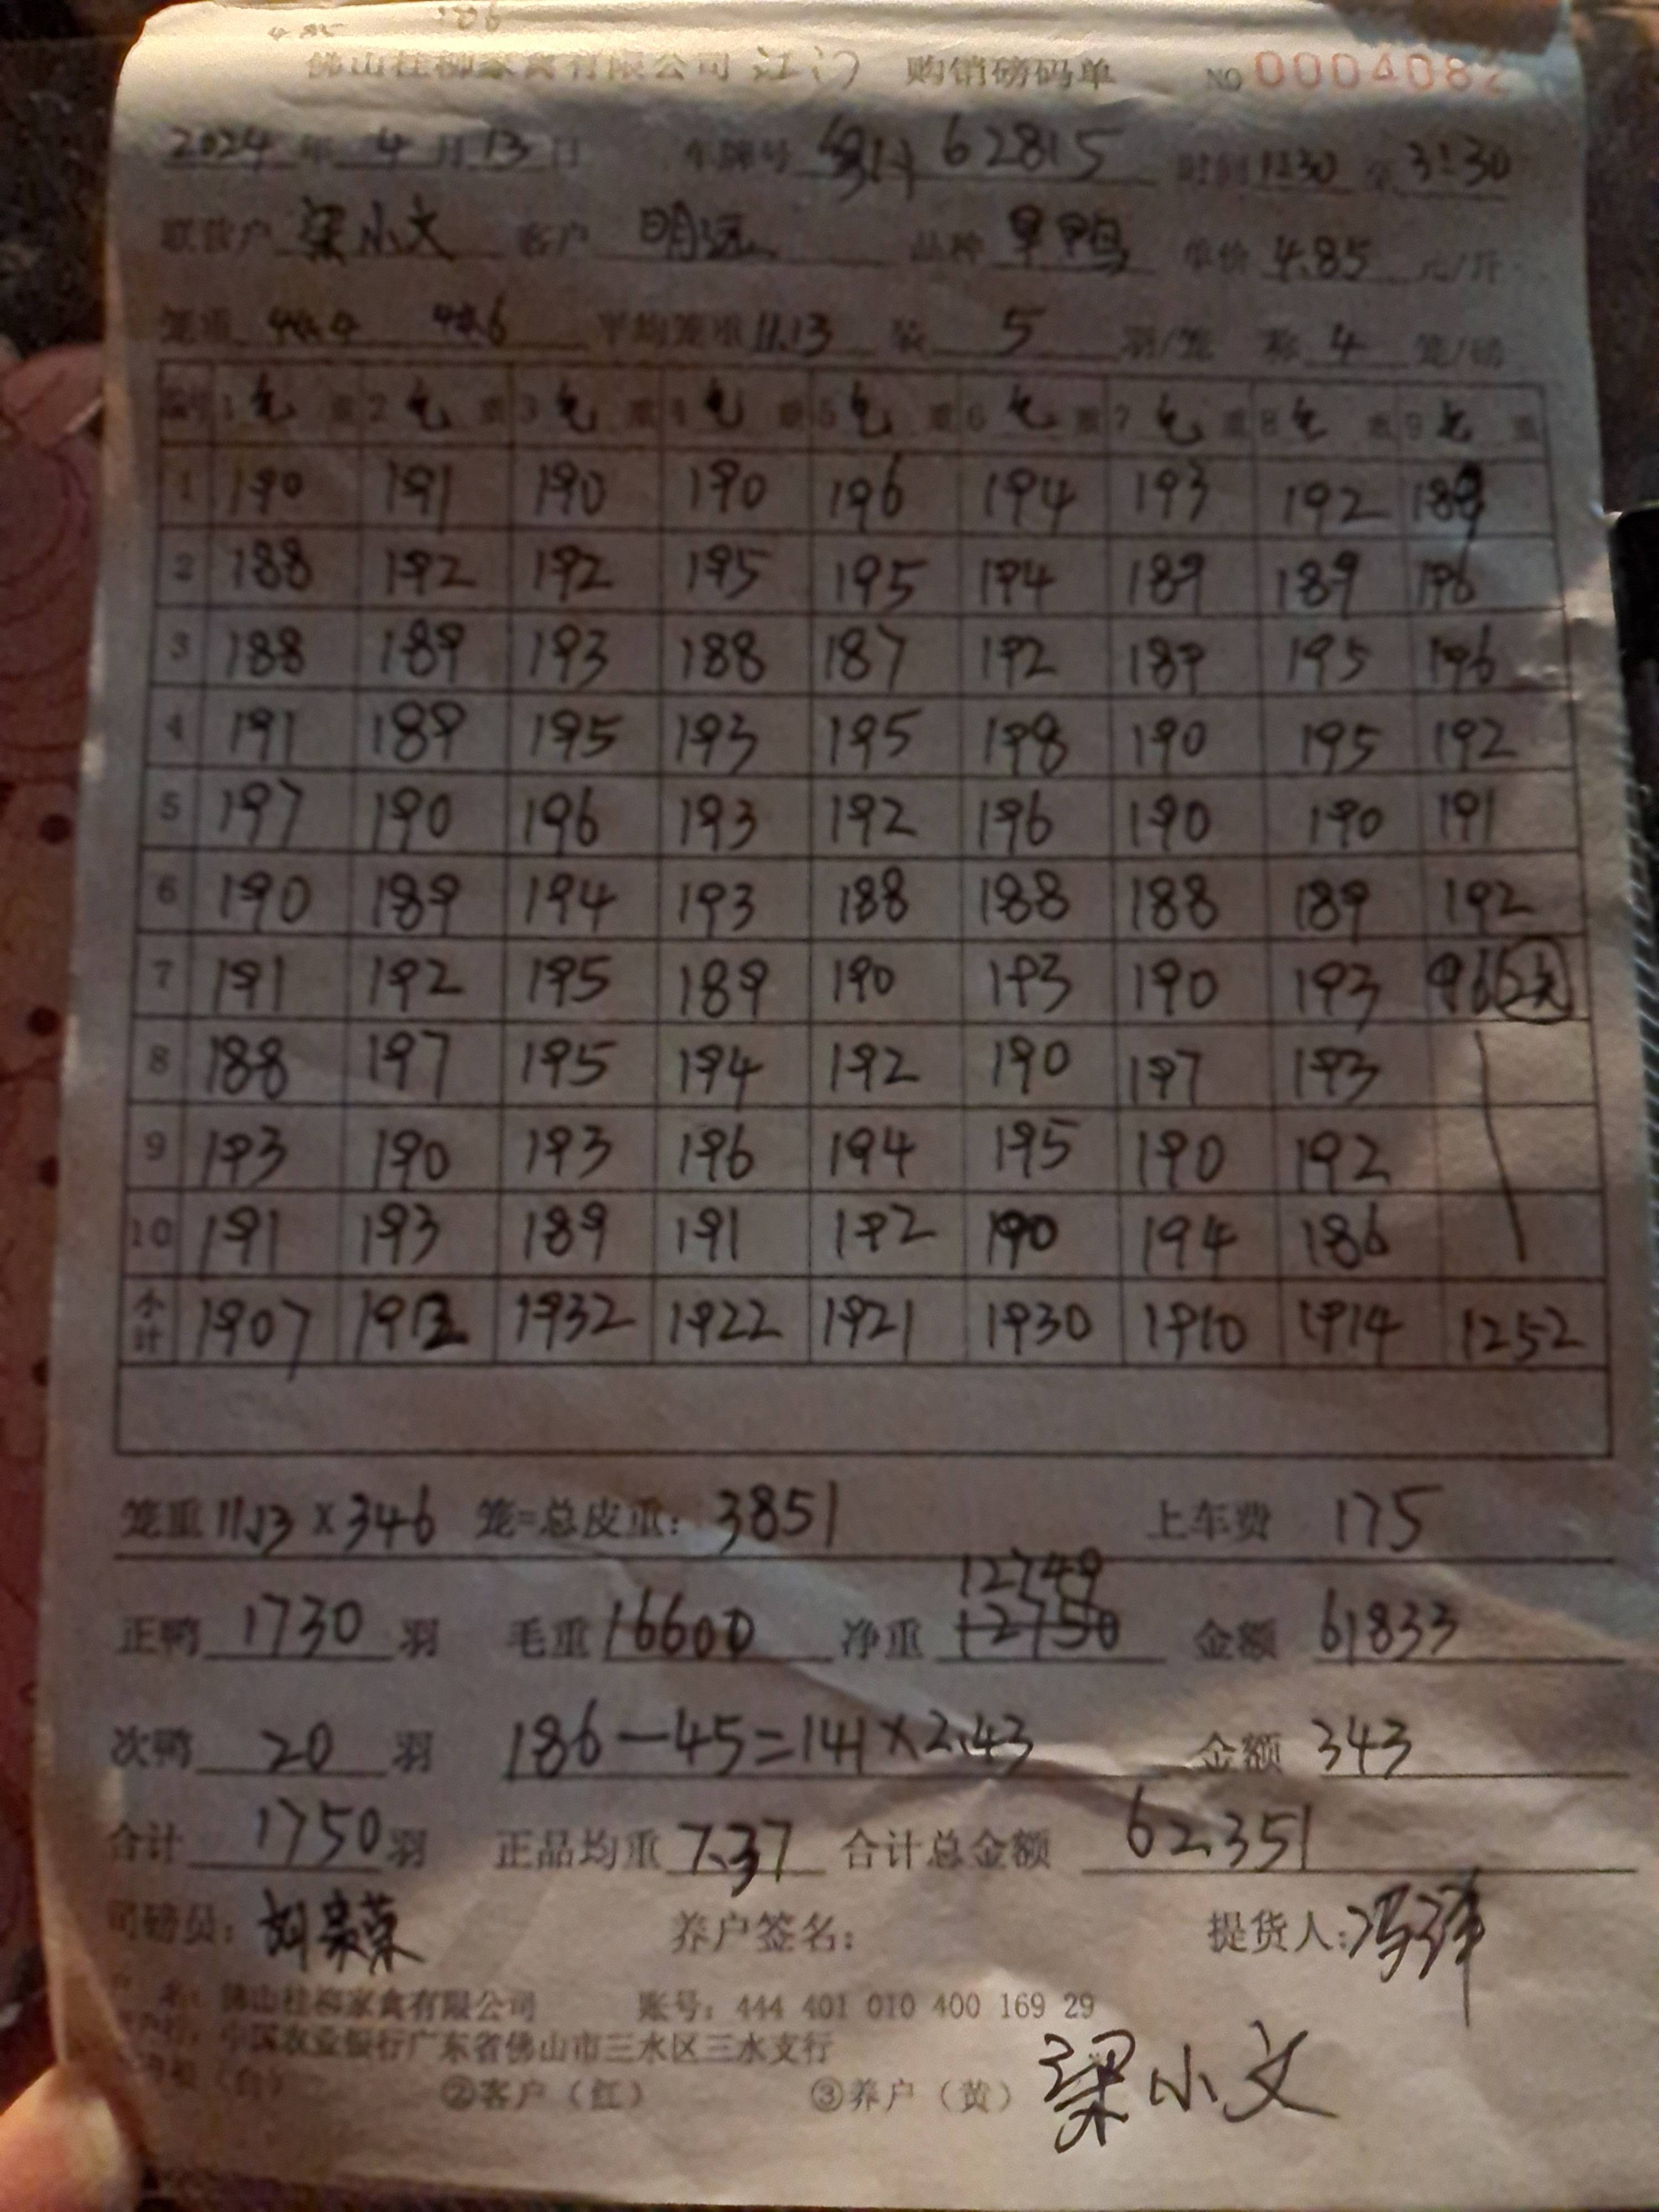 佛山桂柳家禽有限公司 江门 购销磅码单 NO 0004082
2024年4月13日 车牌号 62815 时间 1:30 至 3:30
联营户 梁小文 客户 明远 品种 旱鸭 单价 4.85 元/斤
笼重 44.4 44.6 平均笼重 11.13 装 5 羽/笼 称 4 笼/磅
编号 1 毛 重 2 毛 重 3 毛 重 4 毛 重 5 毛 重 6 毛 重 7 毛 重 8 毛 重 9 毛 重
1 190 191 190 190 196 194 193 192 189
2 188 192 192 195 195 194 189 189 196
3 188 189 193 188 187 192 189 195 196
4 191 189 195 193 195 198 190 195 192
5 197 190 196 193 192 196 190 190 191
6 190 189 194 193 188 188 188 189 192
7 191 192 195 189 190 193 190 193 96
8 188 197 195 194 192 190 197 193
9 193 190 193 196 194 195 190 192
10 191 193 189 191 192 190 194 186
小计 1907 1912 1932 1922 1921 1930 1910 1914 1252
笼重 11.13 × 346 笼=总皮重: 3851 上车费 175
12749
正鸭 1730 羽 毛重 16600 净重 12750 金额 61833
次鸭 20 羽 186-45=141×2.43 金额 343
合计 1750 羽 正品均重 7.37 合计总金额 62351
司磅员: 养户签名: 提货人:
户 名: 佛山桂柳家禽有限公司 账号: 444 401 010 400 169 29
开户行: 中国农业银行广东省佛山市三水区三水支行
(白) ②客户(红) ③养户(黄) 梁小文